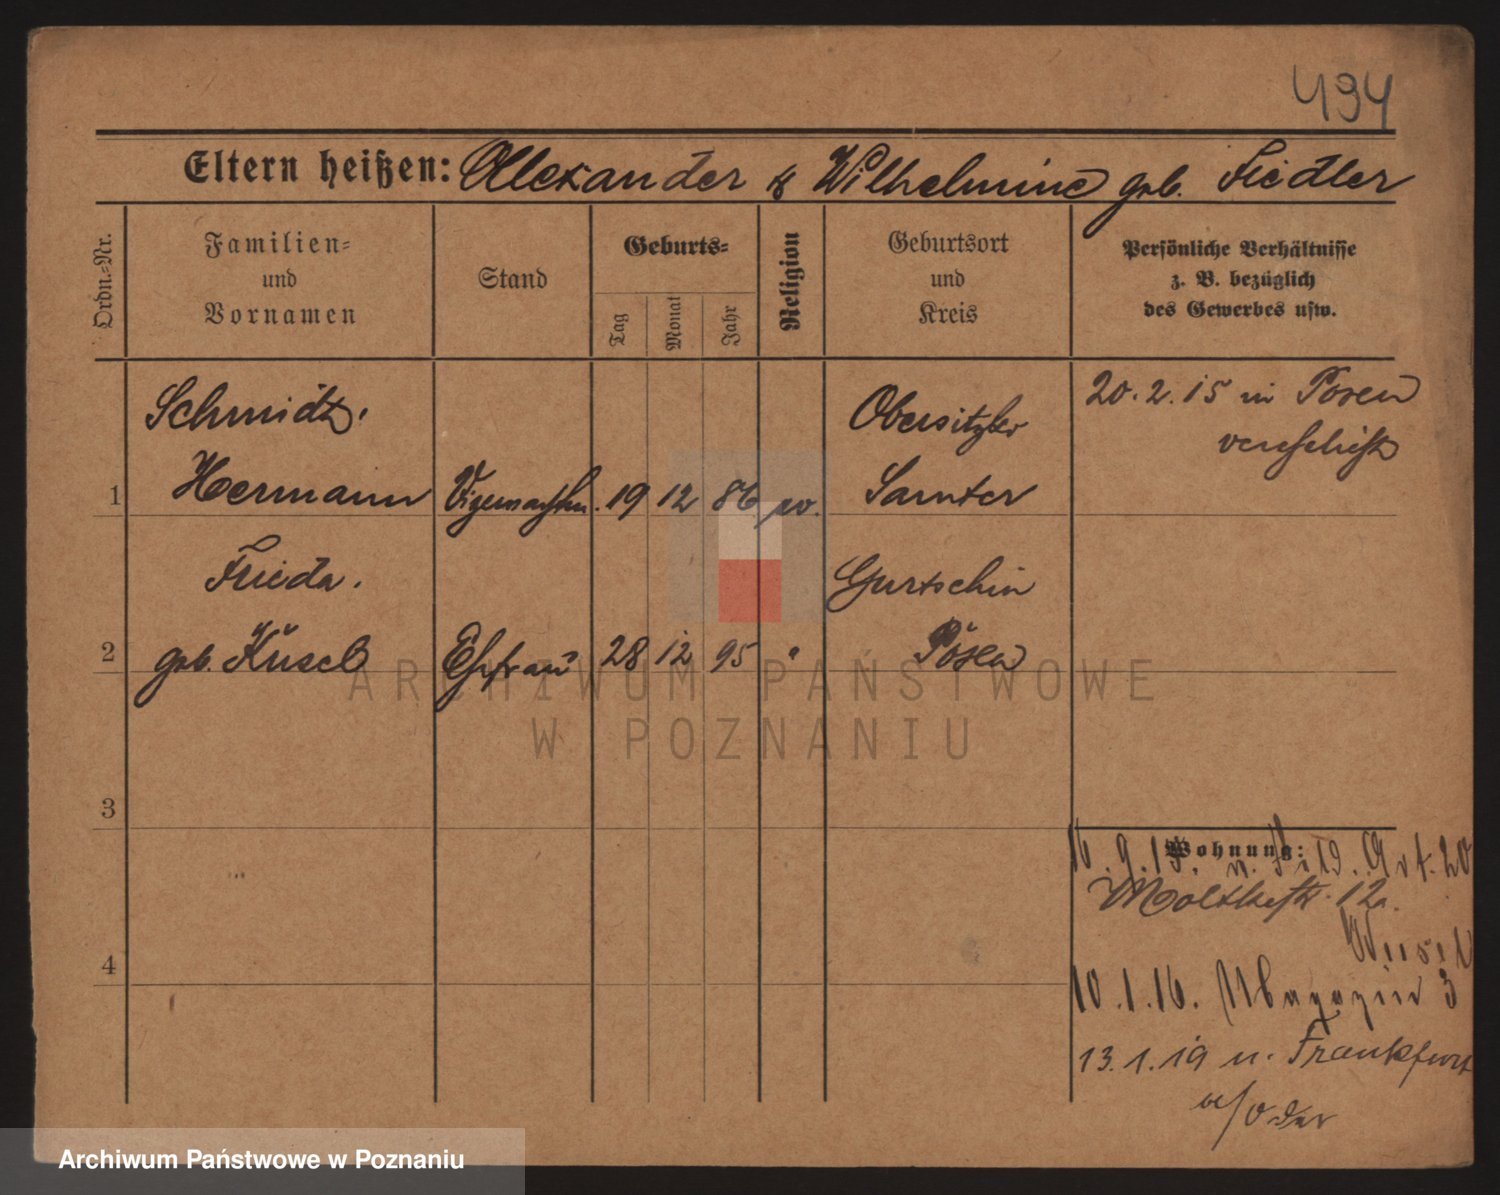 494
Eltern heißen: Allexander & Wilhelmine geb. Fiedler
Ordn.-Nr.
Familien-
und
Vornamen
Stand
Geburts-
Tag
Monat
Jahr
Religion
Geburtsort
und
Kreis
Persönliche Verhältnisse
z. B. bezüglich
des Gewerbes usw.
Schmidt,
Obersitzko
20.2.15 in Posen
1 Hermann 19 12 86 ev. Samter
Frieda. Gurtschin
2 geb. Küseb Ehfrau 28 12 95 " Posen
3
Wohnung:
16.9.15. 20
Moltkestr. 12a.
4
10.1.16. Magazin 3
13.1.19 n. Frankfurt
a/Oder
ARCHIWUM PAŃSTWOWE
W POZNANIU
Archiwum Państwowe w Poznaniu